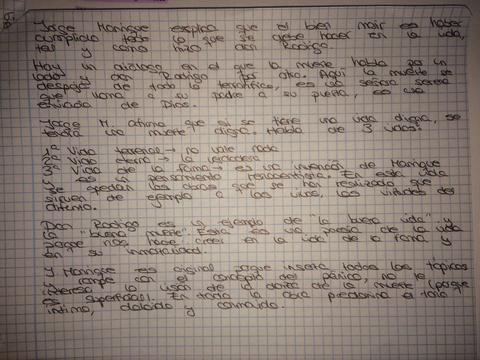 Jorge Manrique explica que el bien morir es haber
cumplido todo lo que se debe hacer en la vida,
tal y como hizo don Rodrigo.
Hay un diálogo en el que la muerte habla por un
lado y don Rodrigo por otro. Aquí la muerte se
despoja de todo lo terrorífico, es una señora serena
que llama a su padre a su puerta, es una
enviada de Dios.
Jorge M. afirma que si se tiene una vida digna, se
tendrá una muerte digna. Habla de 3 vidas:
1ª Vida terrenal → no vale nada
2ª Vida eterna → la verdadera
3ª Vida de la fama → es una invención de Manrique
y es un pensamiento renacentista. En esta vida
se quedan las obras que se han realizado que
sirven de ejemplo a los vivos, las virtudes del
difunto.
Don Rodrigo es el ejemplo de "la buena vida" y
la "buena muerte". Esta es una poesía de la vida
porque nos hace creer en la vida de la fama y
en su inmortalidad.
Y Manrique es original porque inserta todos los tópicos
y rompe con el concepto del pánico, no le
interesa la visión de la danza de la muerte (porque
es superficial). En toda la obra predomina el tono
íntimo, dolorido y conmovido.